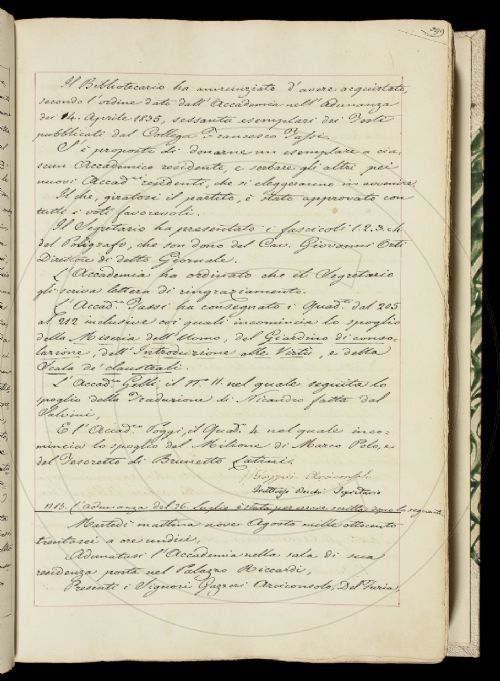 Il Bibliotecario ha annunziato d'avere acquistato,
secondo l'ordine dato dall'Accademia nell'Adunanza
dei 14. Aprile 1835, sessanta esemplari dei Testi
pubblicati dal Collega Francesco Tassi.
S'è proposto di donarne un esemplare a cia-
scun Accademico residente, e serbare gli altri pei
nuovi Accad.ci residenti, che si eleggeranno in avvenire.
Il che, giratosi il partito, è stato approvato con
tutti i voti favorevoli.
Il Segretario ha presentato i fascicoli 1. 2. 3. 4.
del Poligrafo, che son dono del Cav. Giovanni Orti
Direttore di detto Giornale.
L'Accademia ha ordinato che il Segretario
gli scriva lettera di ringraziamento.
L'Accad.co Tassi ha consegnato i Quad.i dal 205
al 212 inclusive coi quali incomincia lo spoglio
della Miseria dell'Uomo, del Giardino di conso-
lazione, dell'Introduzione alle Virtù, e della
Scala de' claustrali.
L'Accad.co Gelli, il N.o 11. nel quale seguita lo
spoglio della Traduzione di Nicandro fatta dal
Salvini,
E l'Accad.co Poggi, il Quad.o 4. nel quale inco-
mincia lo spoglio del Milione di Marco Polo, e
del Tesoretto di Brunetto Latini.
Arciconsolo
Segretario
L'adunanza del 26. luglio è stata per errore
Martedì mattina nove Agosto mille ottocento
trentasei a ore undici,
Adunatasi l'Accademia nella sala di sua
residenza posta nel Palazzo Riccardi,
Presenti i Signori Gazzeri Arciconsolo, Del Furia,